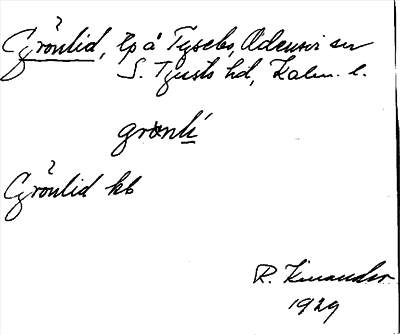 ?
Grönlid, lp å Tysebo, Odensvi sn
S. Tjusts hd, Kalm. l.
grönlí
?
Grönlid kb
R. Kinander
1929